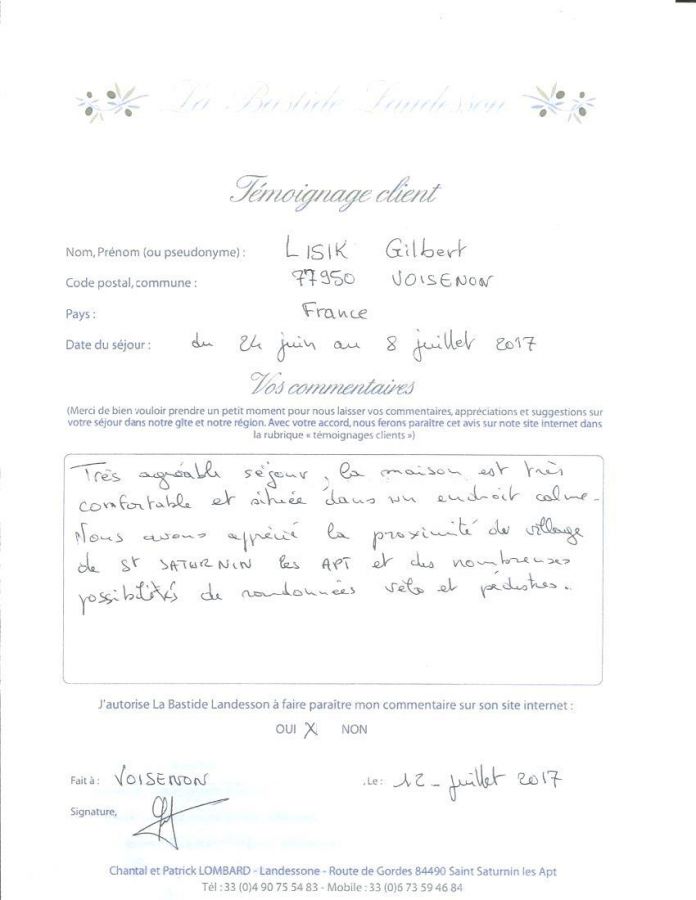 La Bastide Landesson
Témoignage client
Nom, Prénom (ou pseudonyme) : LISIK Gilbert
Code postal, commune : 77950 VOISENON
Pays : France
Date du séjour : du 24 juin au 8 juillet 2017
Vos commentaires
(Merci de bien vouloir prendre un petit moment pour nous laisser vos commentaires, appréciations et suggestions sur
votre séjour dans notre gîte et notre région. Avec votre accord, nous ferons paraître cet avis sur note site internet dans
la rubrique « témoignages clients »)
Très agréable séjour, la maison est très
comfortable et située dans un endroit calme.
Nous avons apprécié la proximité du village
de St SATURNIN les APT et des nombreuses
possibilités de randonnées vélo et pédestres.
J'autorise La Bastide Landesson à faire paraître mon commentaire sur son site internet :
OUI X NON
Fait à : VOISENON .Le : 12 - juillet 2017
Signature,
Chantal et Patrick LOMBARD - Landessone - Route de Gordes 84490 Saint Saturnin les Apt
Tél : 33 (0)4 90 75 54 83 - Mobile : 33 (0)6 73 59 46 84